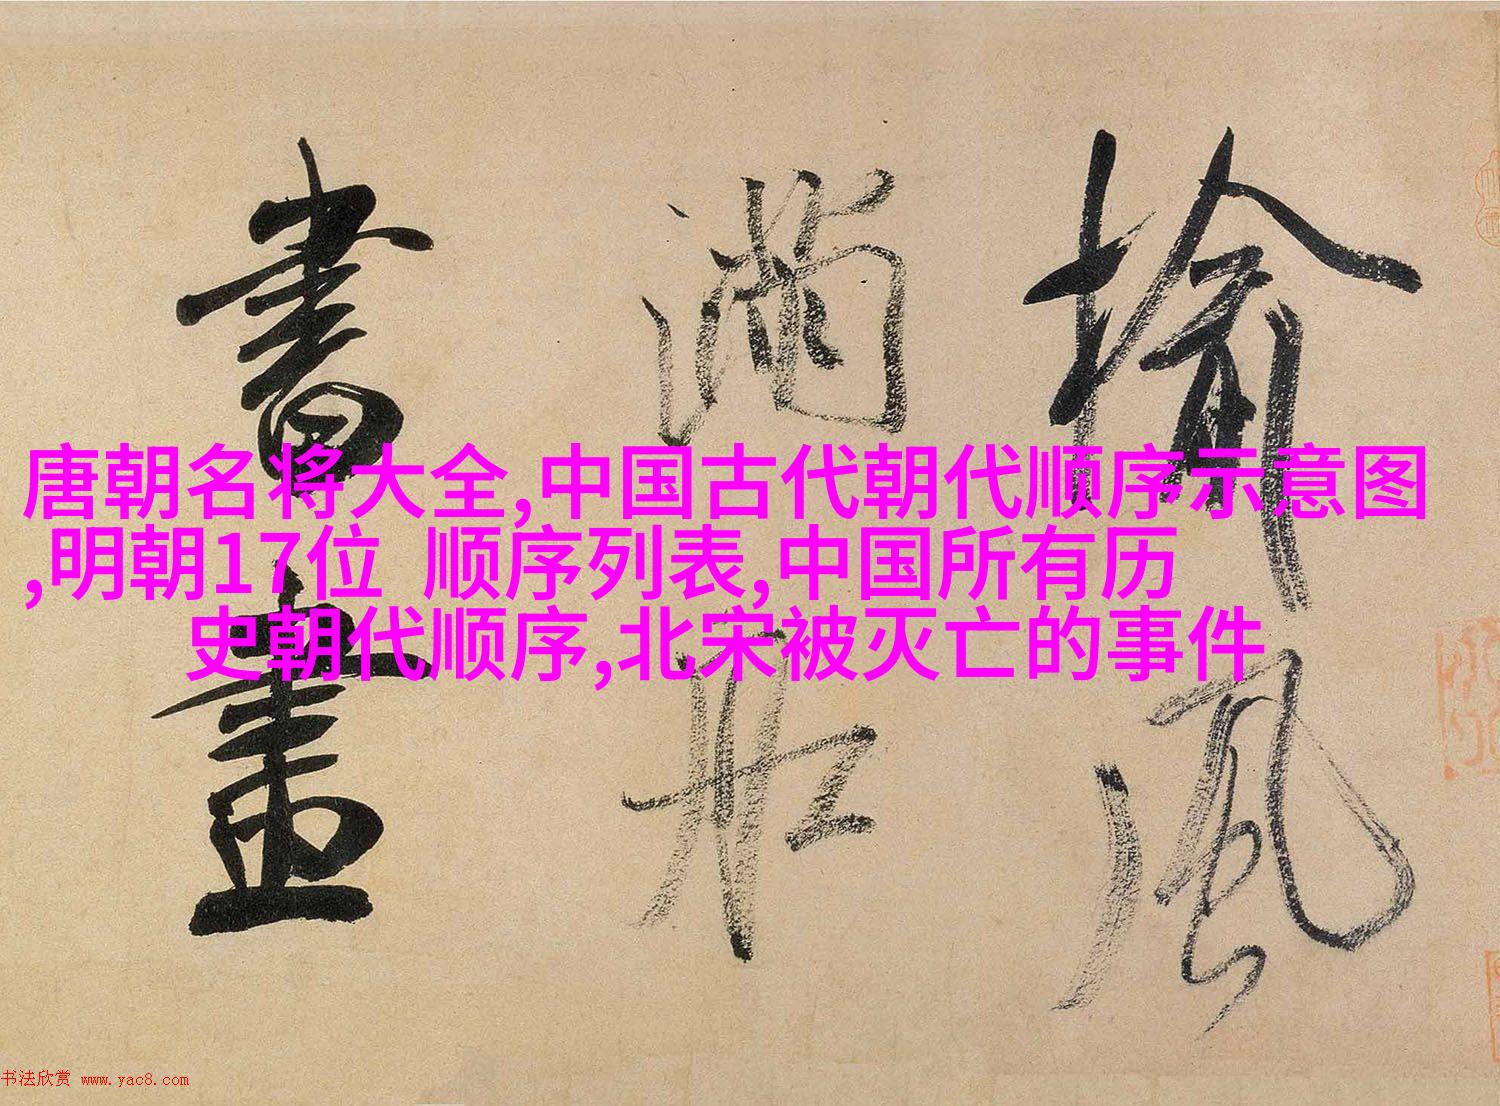 榆風
滿舡
書畫
唐朝名将大全,中国古代朝代顺序示意图
,明朝17位 顺序列表,中国所有历
史朝代顺序,北宋被灭亡的事件
书法欣赏 www.yac8.com